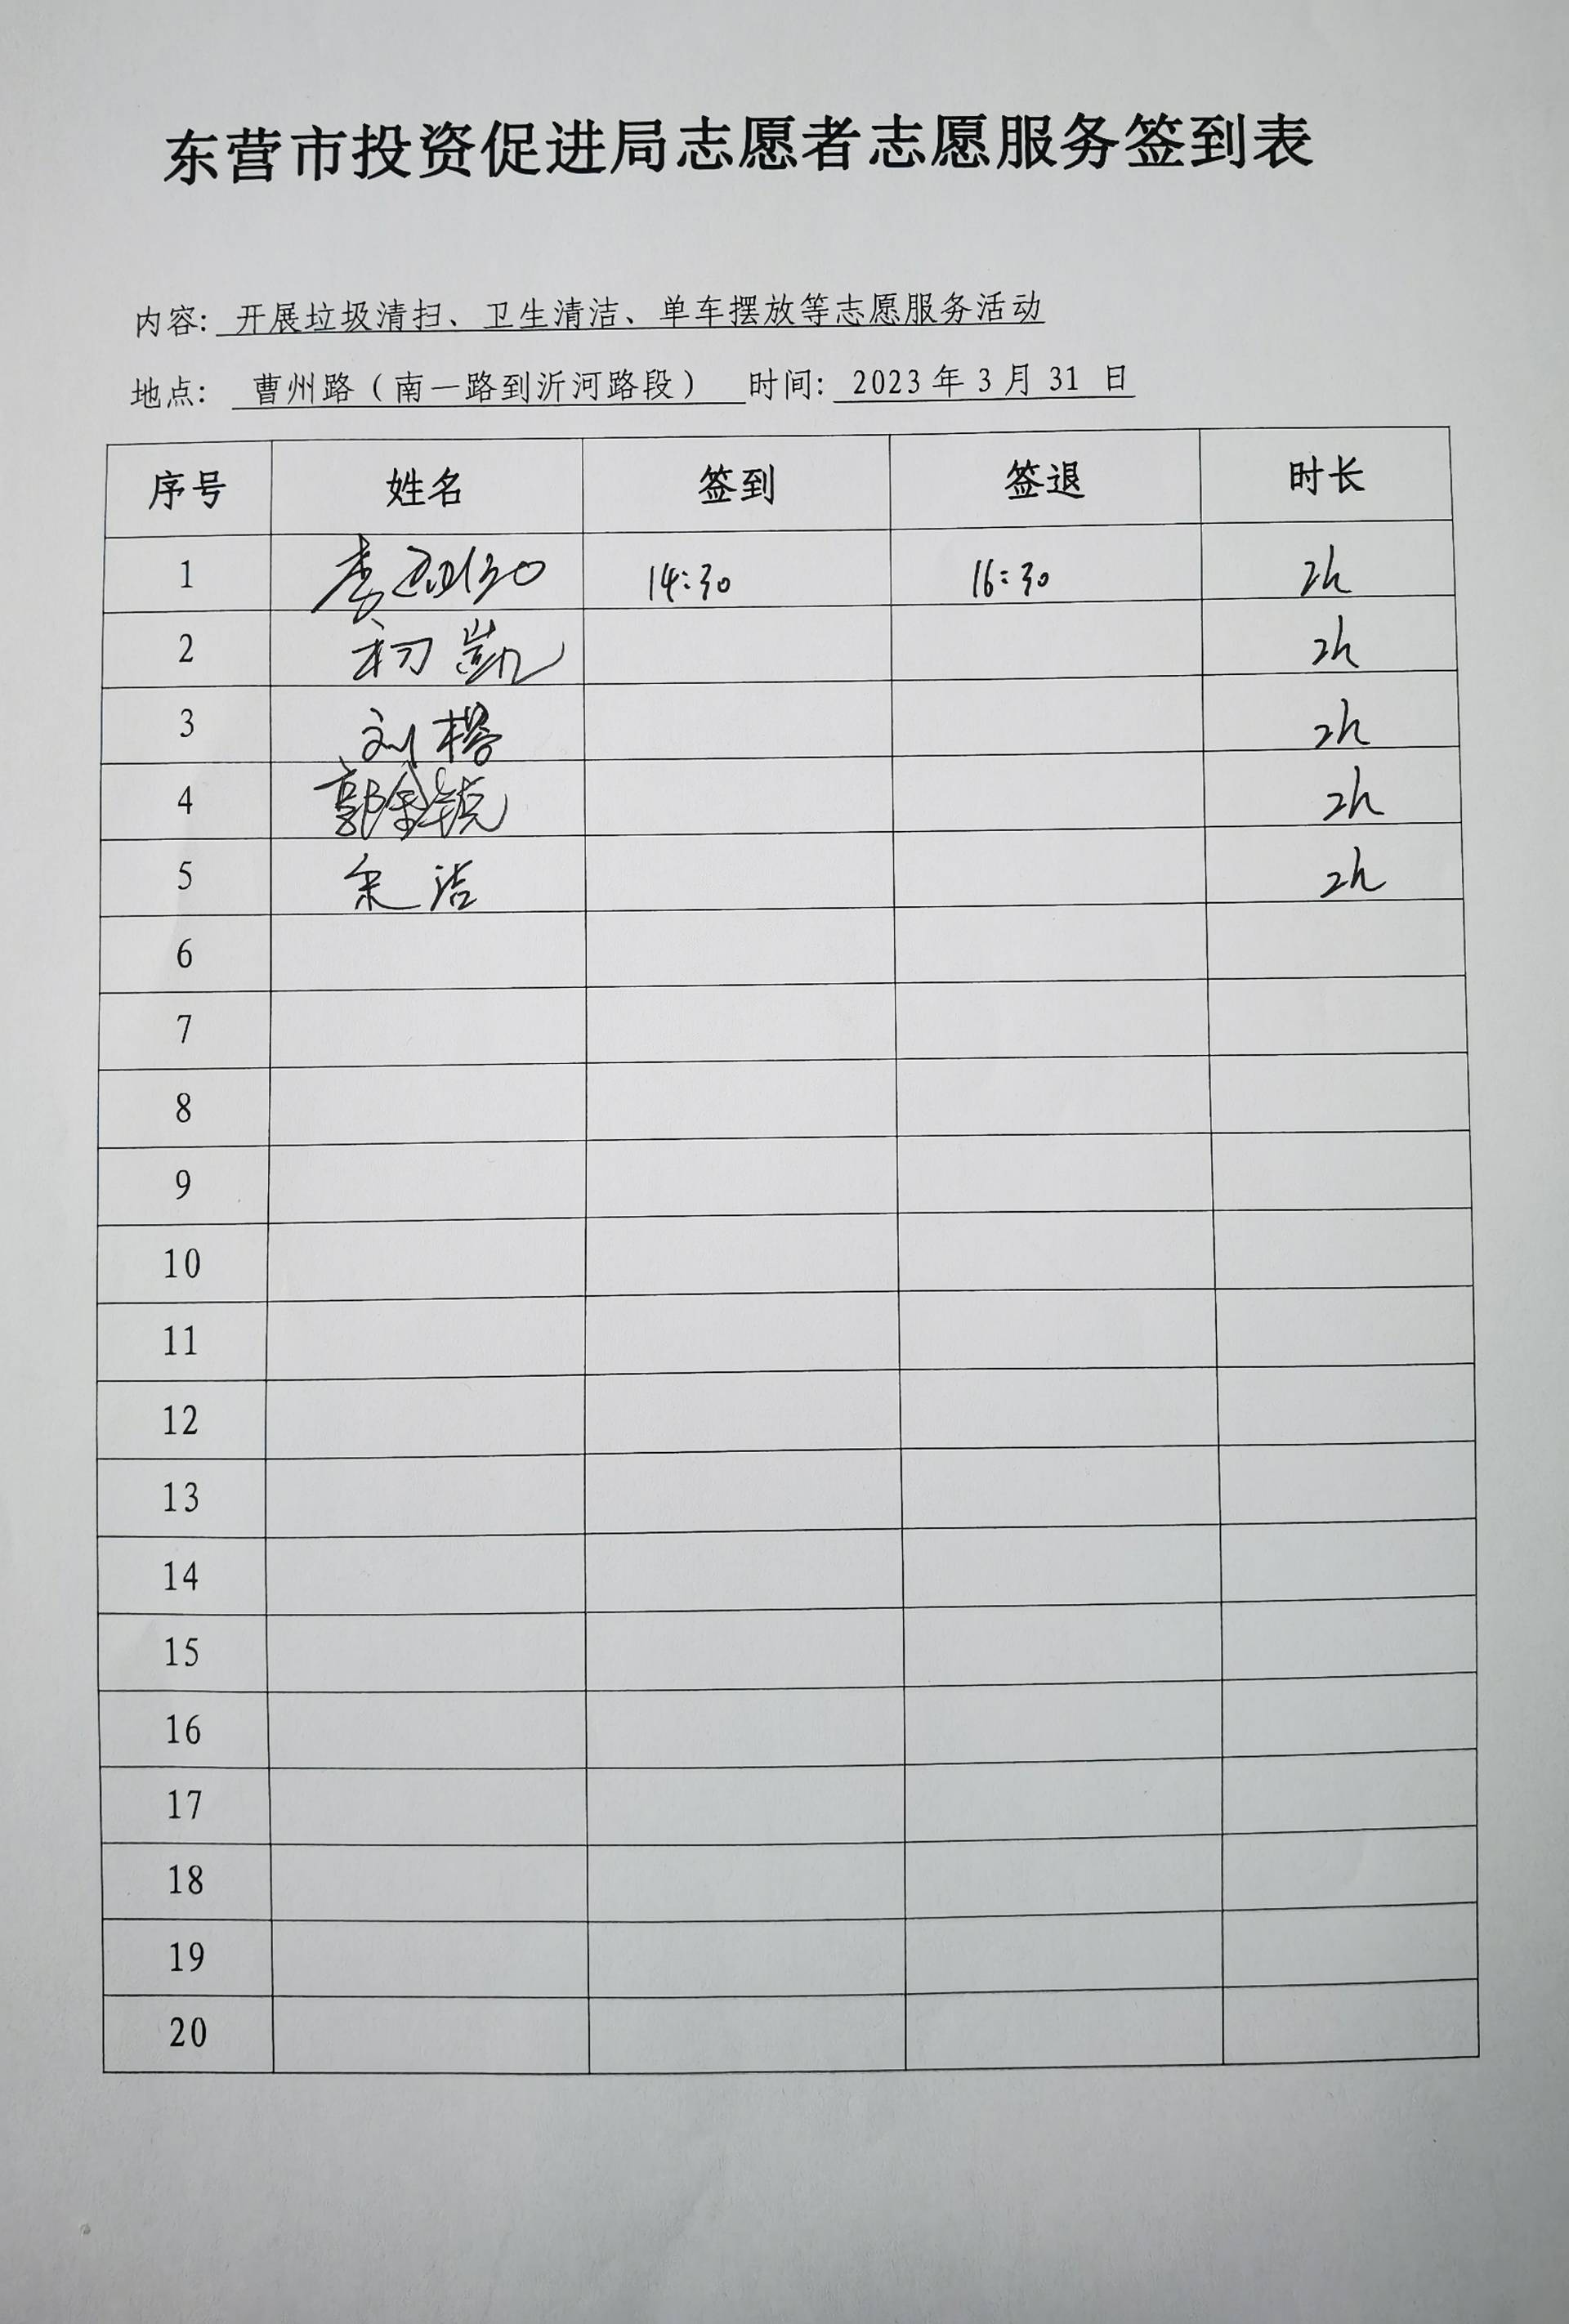 东营市投资促进局志愿者志愿服务签到表
内容: 开展垃圾清扫、卫生清洁、单车摆放等志愿服务活动
地点: 曹州路（南一路到沂河路段） 时间: 2023 年 3 月 31 日
序号 姓名 签到 签退 时长
1 李 14:30 16:30 2h
2 杨凯 2h
3 刘 2h
4 郭 2h
5 洁 2h
6
7
8
9
10
11
12
13
14
15
16
17
18
19
20